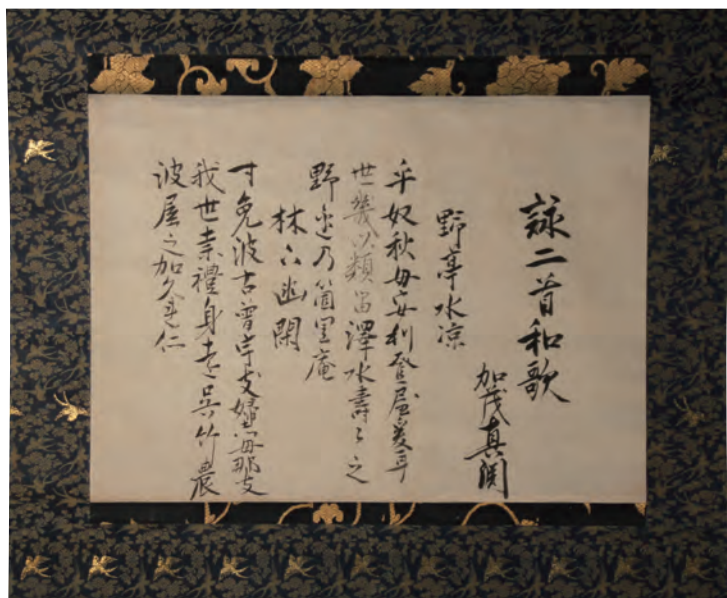 詠二首和歌
加茂真渕
野亭水凉
奴秋毋安利登屋夏耳
世幾以類留澤水壽々之
野邊乃箇里庵
林下幽閑
寸免波古曽宇支婦志毋那支
我世奈禮身者呉竹農
波屋之加久連仁